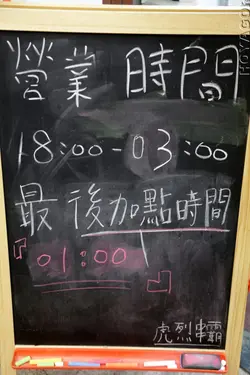 營業時間
18:00-03:00
最後加點時間
『01:00』
虎烈串霸